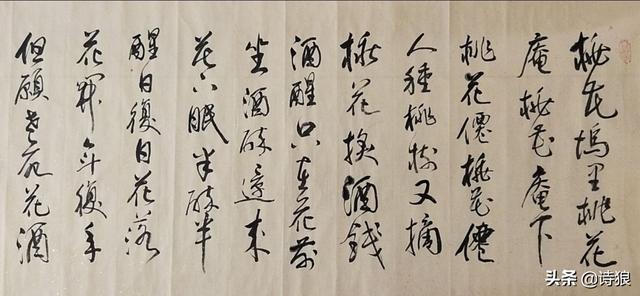 桃花塢里桃花
庵桃花庵下
桃花僊桃花僊
人種桃樹又摘
桃花換酒錢
酒醒只在花前
坐酒醉還來
花下眠半醉半
醒日復日花落
花開年復年
但願老死花酒
头条 @诗狼